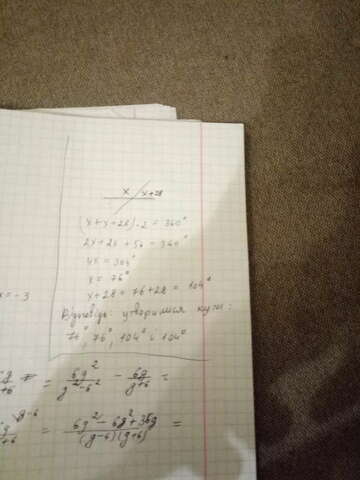 x x+28
(x+x+28)·2 = 360°
2x+2x+56=360°
4x=304°
x = 76°
x+28=76+28=104°
Відповідь: утворилися кути:
76°, 76°, 104° і 104°
x=-3
= 6y² / y²-6² - 6y / y+6 =
y-6
= 6y² - 6y² + 36y / (y-6)(y+6) =